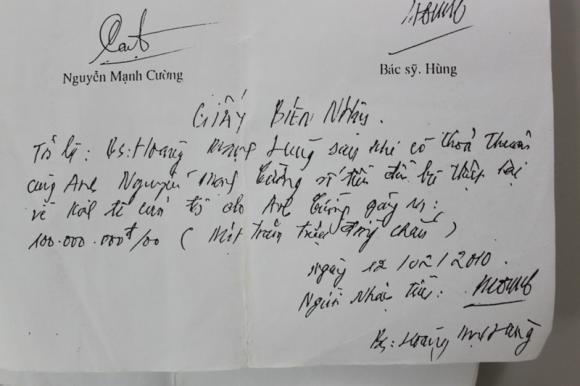 Nguyễn Mạnh Cường
Bác sỹ. Hùng
GIẤY BIÊN NHẬN.
Tôi là: Bs: Hoàng Mạnh Hùng sau khi có thoả thuận
cùng Anh Nguyễn Mạnh Cường số tiền đền bù thiệt hại
về kinh tế do Anh Cường gây ra:
100.000.000đ/00 (Một trăm triệu đồng chẵn)
Ngày 12/02/2010.
Người nhận tiền:
Bs: Hoàng Mạnh Hùng